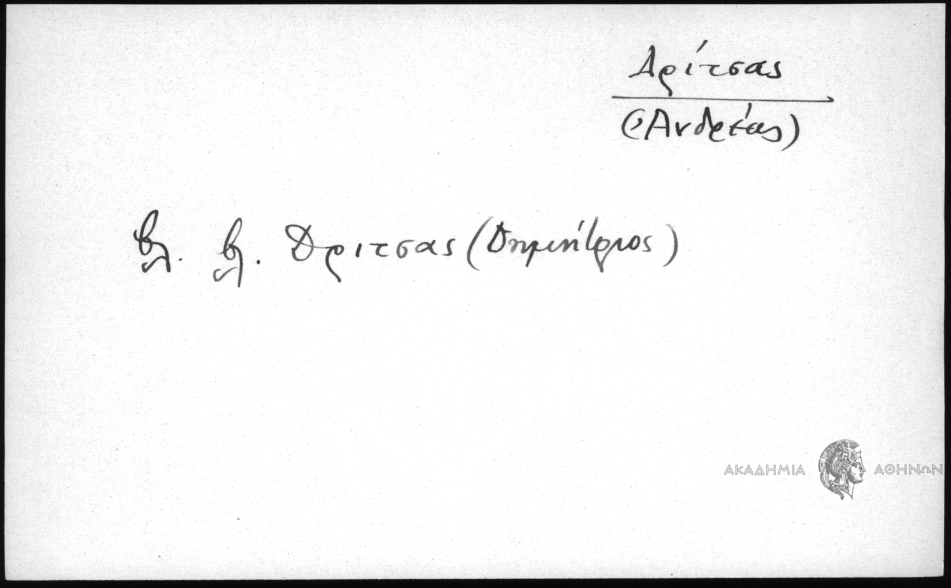 Δρίτσας
(Ἀνδρέας)
βλ. βλ. Δριτσας (Δημήτριος)
ΑΚΑΔΗΜΙΑ ΑΘΗΝΩΝ